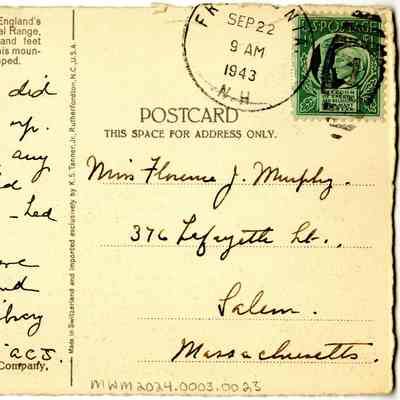 England's
al Range,
and feet
his moun-
ped.
did
up.
any
- led
ore
brary
ACJ.
Company.
Made in Switzerland and imported exclusively by K. S. Tanner, Jr., Rutherfordton, N.C., U.S.A.
SEP 22
9 AM
1943
N.H.
POSTAGE
POSTCARD
THIS SPACE FOR ADDRESS ONLY.
Miss Florence J. Murphy.
376 Lafayette St.,
Salem.
Massachusetts.
MWM2024.0003.0023